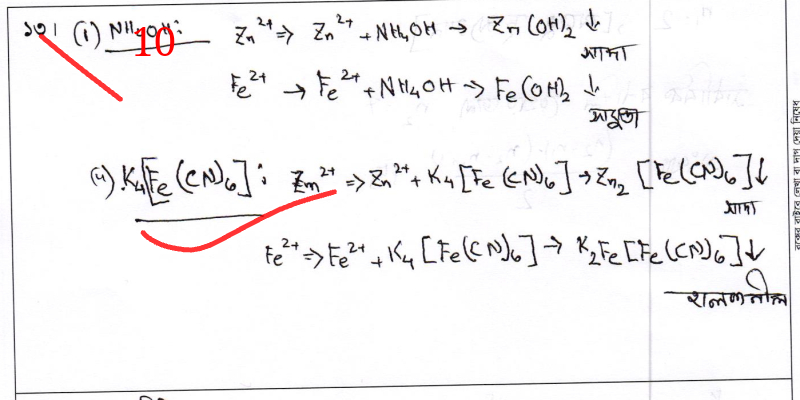 ১৩। (i) NH₄OH: 10 Zn²⁺ ⇒ Zn²⁺ + NH₄OH → Zn(OH)₂ ↓
সাদা
Fe²⁺ → Fe²⁺ + NH₄OH → Fe(OH)₂ ↓
সবুজ
(ii) K₄[Fe(CN)₆]: Zn²⁺ ⇒ Zn²⁺ + K₄[Fe(CN)₆] → Zn₂[Fe(CN)₆]↓
সাদা
Fe²⁺ ⇒ Fe²⁺ + K₄[Fe(CN)₆] → K₂Fe[Fe(CN)₆]↓
হালকা নীল